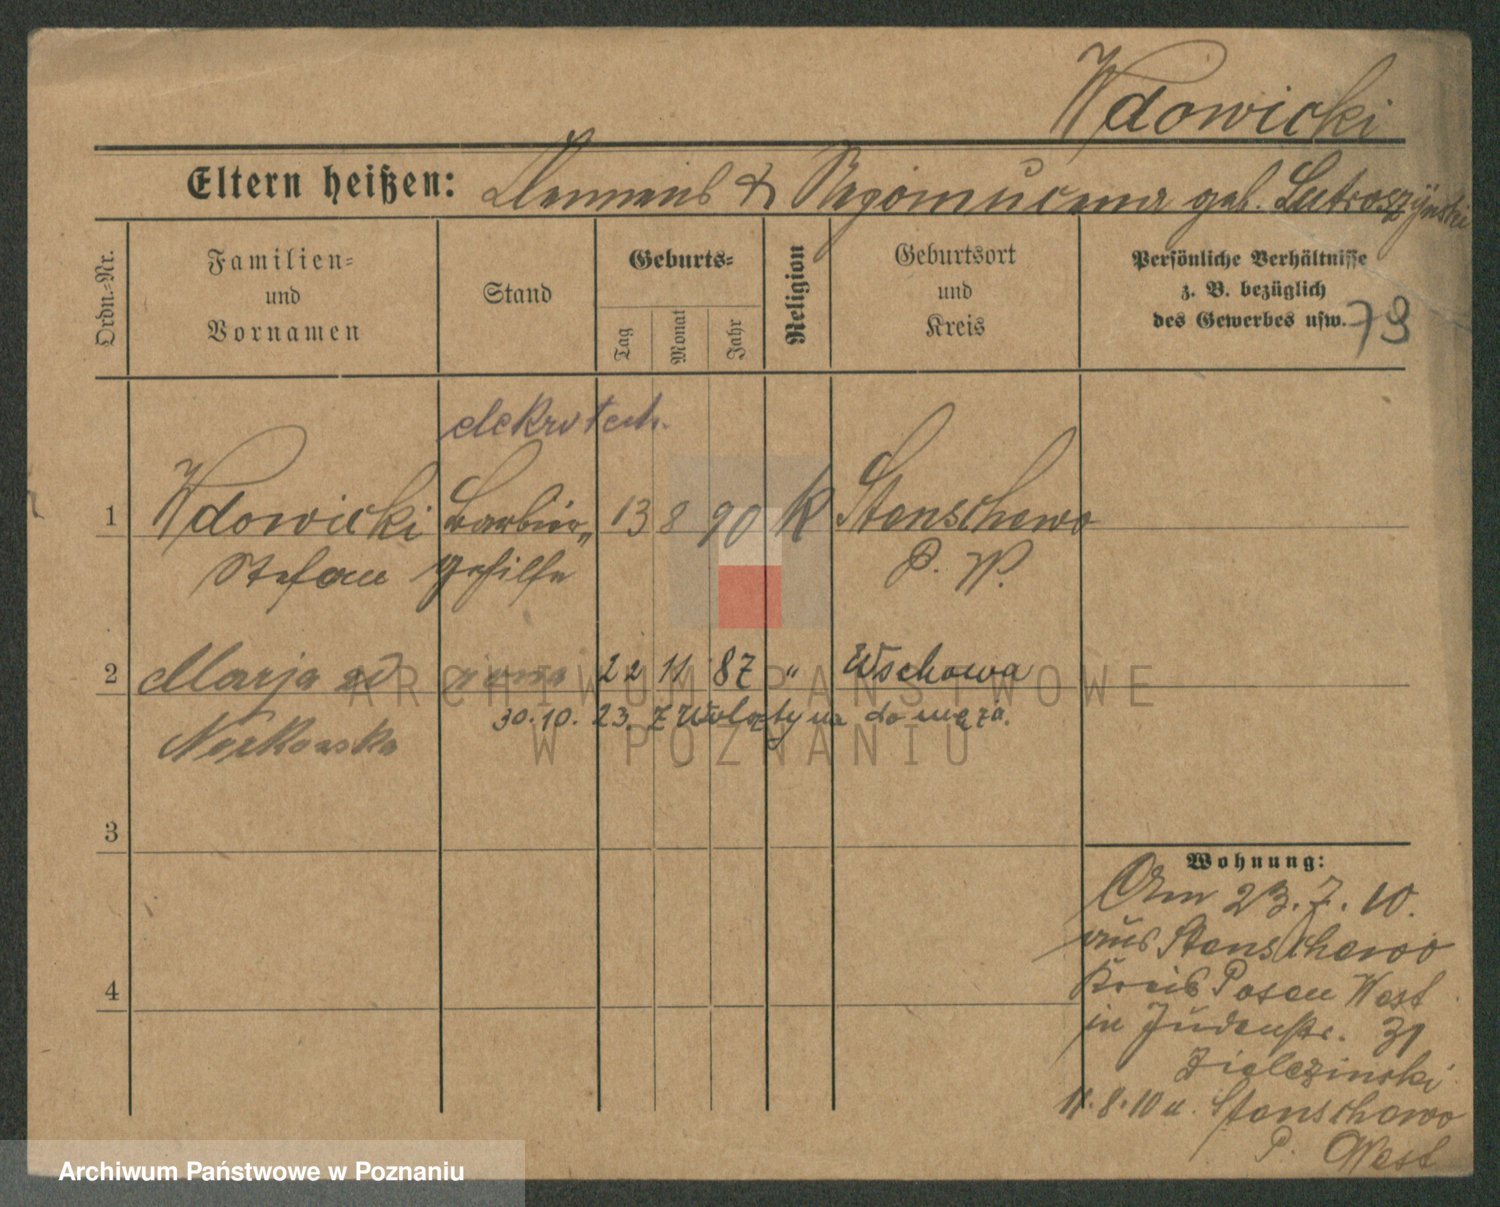 Wdowicki
Eltern heißen: Clemens & Nepomucena geb. Lutroszynski
Ordn.-Nr.
Familien-
und
Vornamen
Stand
Geburts-
Tag
Monat
Jahr
Religion
Geburtsort
und
Kreis
Persönliche Verhältnisse
z. B. bezüglich
des Gewerbes usw.
79
elekrotech.
1 Wdowicki Barbier- 13 8 90 K Stenschewo
Stefan gehilfe P. W.
2 Marja 22 11 87 " Wschowa
30.10.23. z Wolsztyna do męża.
3
4
Wohnung:
Am 23.7.10.
aus Stenschewo
Kreis Posen West
in Judenstr. 31
Zielczinski
11.8.10 n. Stenschewo
P. West
ARCHIWUM PAŃSTWOWE
W POZNANIU
Archiwum Państwowe w Poznaniu